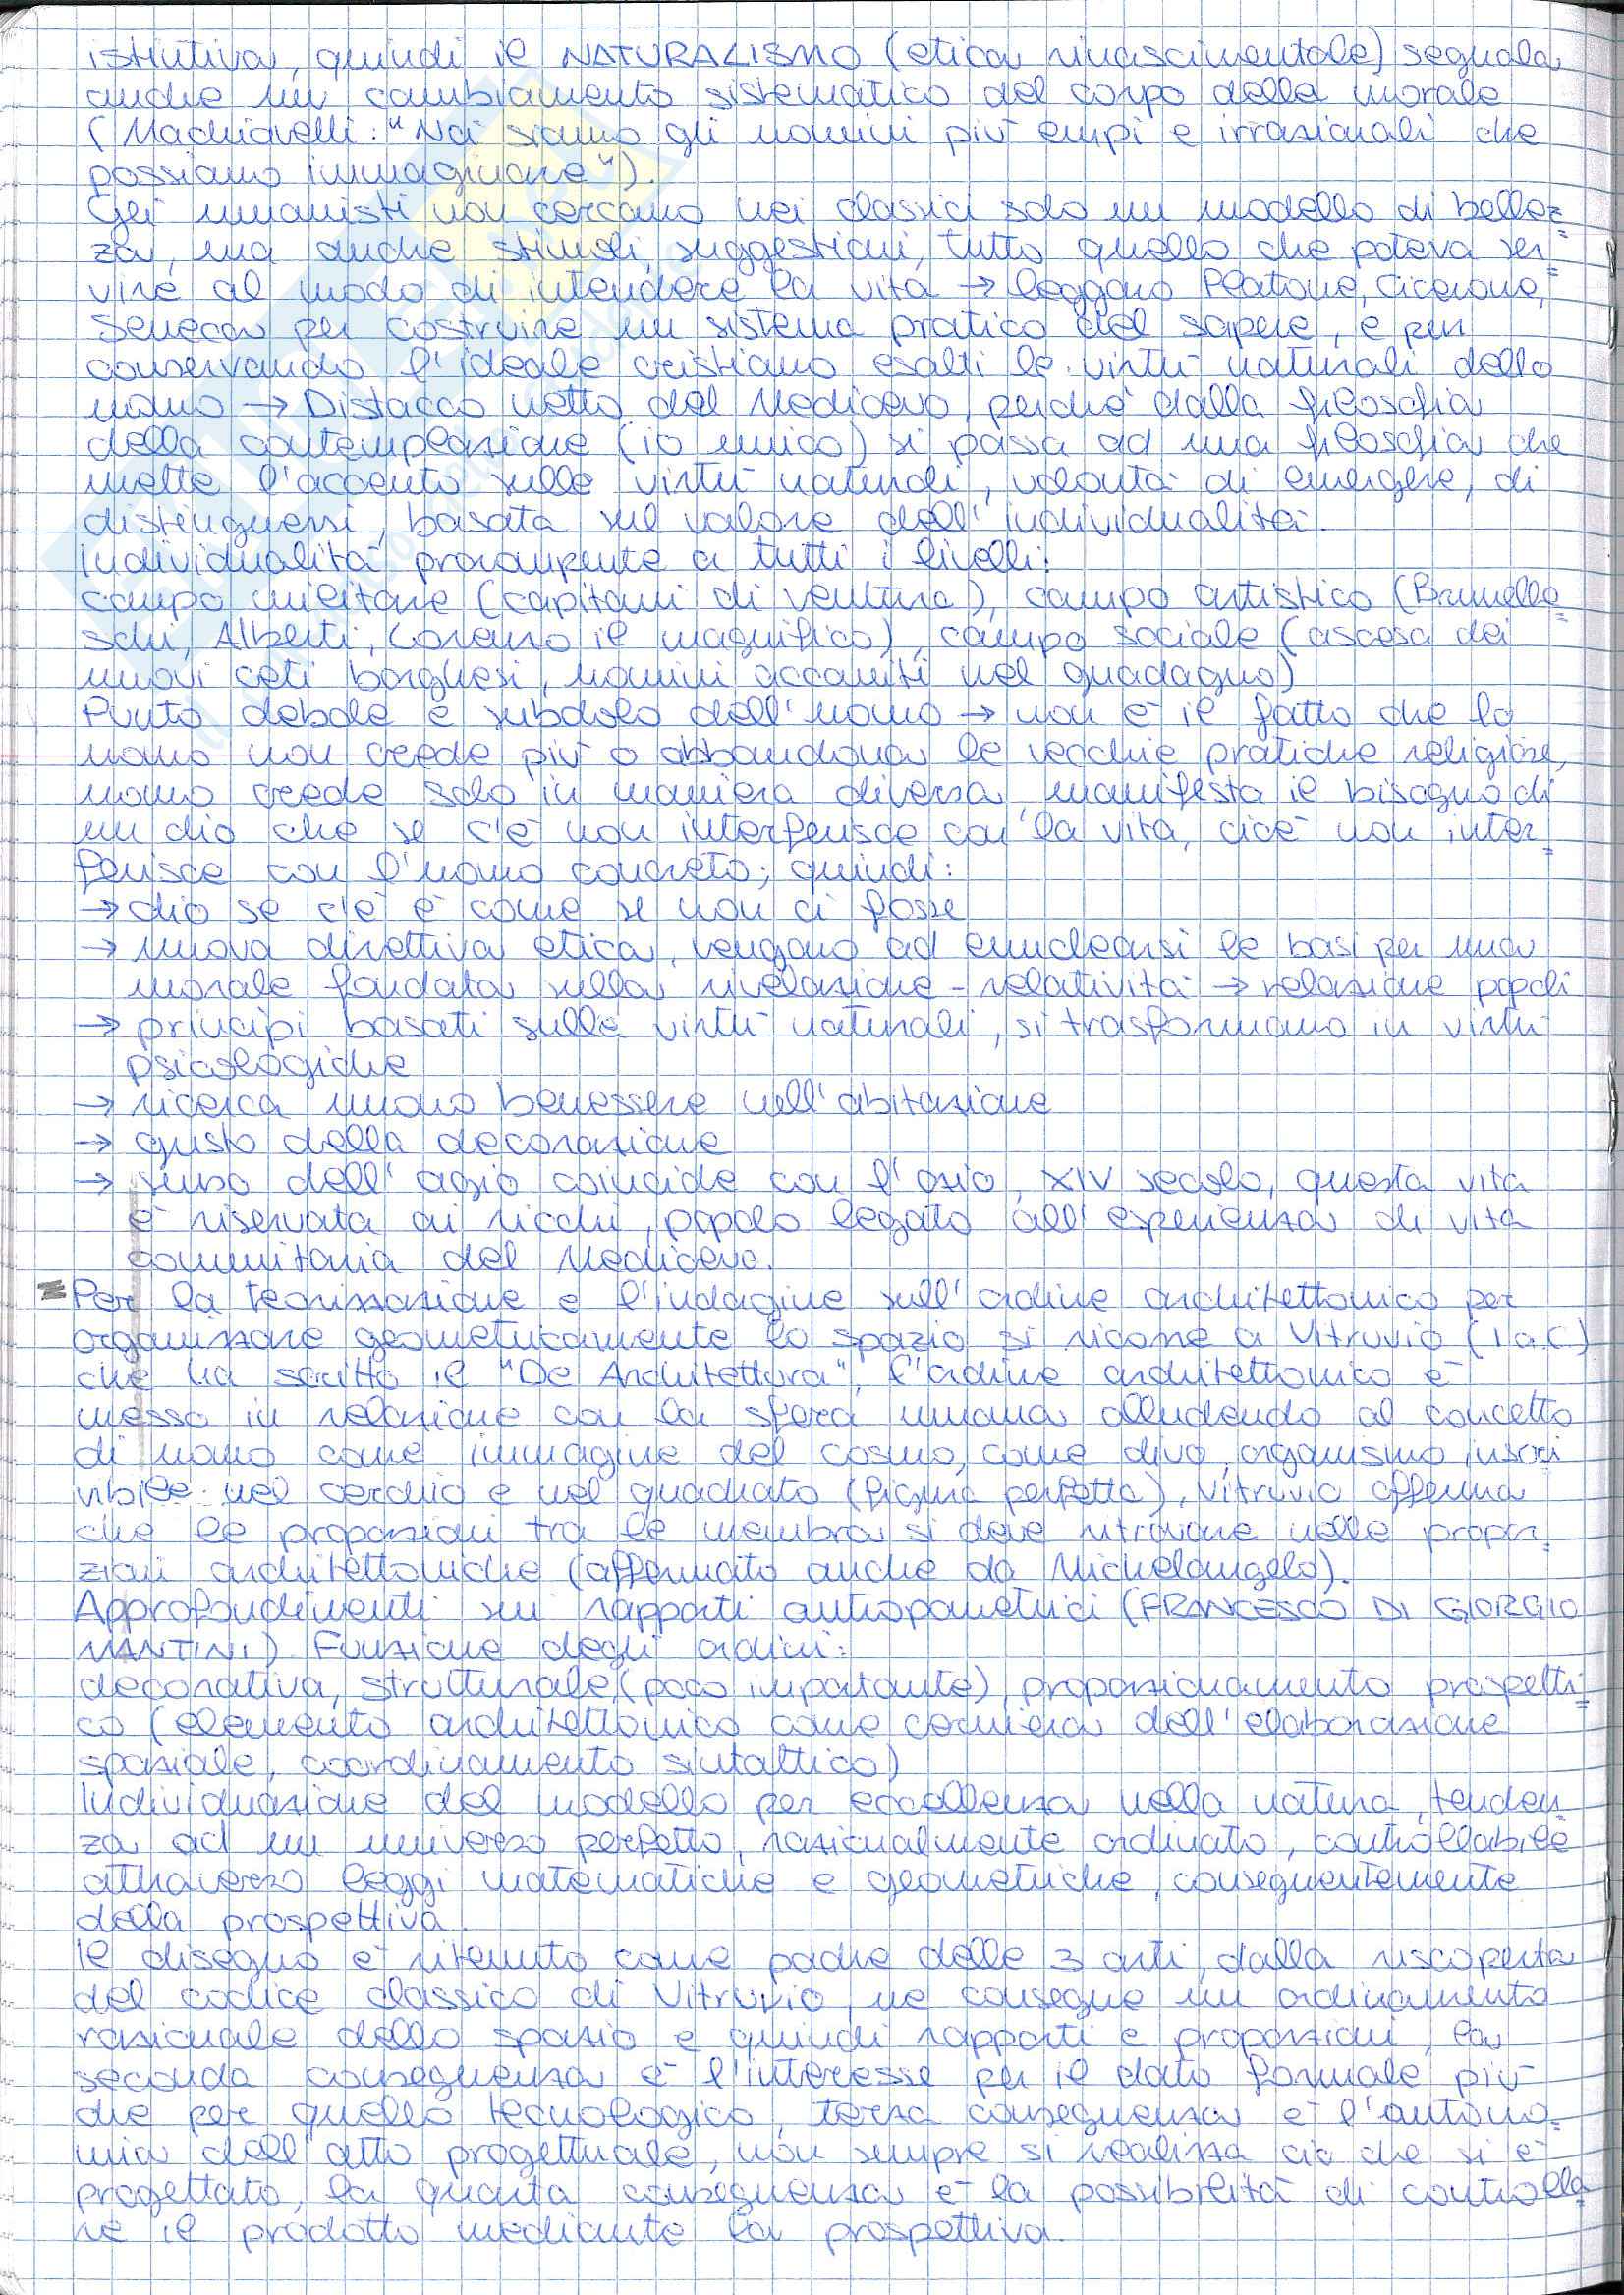 istintiva, quindi il NATURALISMO (etica rinascimentale) segnala
anche un cambiamento sistematico del corpo della morale
(Machiavelli: "Noi siamo gli uomini più empi e irrazionali che
possiamo immaginare").
Gli umanisti non cercano nei classici solo un modello di bellez=
za, ma anche stimoli, suggestioni, tutto quello che poteva ser=
vire al modo di intendere la vita → leggono Platone, Cicerone,
Seneca per costruire un sistema pratico del sapere, e pur
conservando l'ideale cristiano esalti le virtù naturali dello
uomo → Distacco netto dal Medioevo, perché dalla filosofia
della contemplazione (io unico) si passa ad una filosofia che
mette l'accento sulle virtù naturali, volontà di emergere, di
distinguersi, basata sul valore dell'individualità.
Individualità prorompente a tutti i livelli:
campo militare (capitani di ventura), campo artistico (Brunelle=
schi, Alberti, Lorenzo il magnifico), campo sociale (ascesa dei
nuovi ceti borghesi, uomini accaniti nel guadagno)
Punto debole e subdolo dell'uomo → non è il fatto che lo
uomo non crede più o abbandona le vecchie pratiche religiose,
uomo crede solo in maniera diversa, manifesta il bisogno di
un dio che se c'è non interferisce con la vita, cioè non inter=
ferisce con l'uomo concreto; quindi:
→ dio se c'è è come se non ci fosse
→ nuova direttiva etica, vengono ad enuclearsi le basi per una
morale fondata sulla rivelazione - relatività → relazione popoli
→ principi basati sulle virtù naturali, si trasformano in virtù
psicologiche
→ ricerca nuovo benessere nell'abitazione
→ gusto della decorazione
→ senso dell'agio coincide con l'ozio, XIV secolo, questa vita
è riservata ai ricchi, popolo legato all'esperienza di vita
comunitaria del Medioevo.
Per la teorizzazione e l'indagine sull'ordine architettonico per
organizzare geometricamente lo spazio si ricorre a Vitruvio (I a.C.)
che ha scritto il "De Architettura", l'ordine architettonico è
messo in relazione con la sfera umana alludendo al concetto
di uomo come immagine del cosmo, come divo, organismo inscri
vibile nel cerchio e nel quadrato (figura perfetta), Vitruvio afferma
che le proporzioni tra le membra si deve ritrovare nelle propor=
zioni architettoniche (affermato anche da Michelangelo).
Approfondimenti sui rapporti antropometrici (FRANCESCO DI GIORGIO
MANTINI) Funzione degli ordini:
decorativa, strutturale (poco importante), proporzionamento prospetti=
co (elemento architettonico come cerniera dell'elaborazione
spaziale, coordinamento sintattico)
Individuazione del modello per eccellenza nella natura, tenden=
za ad un universo perfetto, razionalmente ordinato, controllabile
attraverso leggi matematiche e geometriche, conseguentemente
della prospettiva.
Il disegno è ritenuto come padre delle 3 arti, dalla riscoperta
del codice classico di Vitruvio, ne consegue un ordinamento
razionale dello spazio e quindi rapporti e proporzioni, la
seconda conseguenza è l'interesse per il dato formale più
che per quello tecnologico, terza conseguenza è l'autono=
mia dell'atto progettuale, non sempre si realizza ciò che si è
progettato, la quarta conseguenza è la possibilità di controlla
re il prodotto mediante la prospettiva.